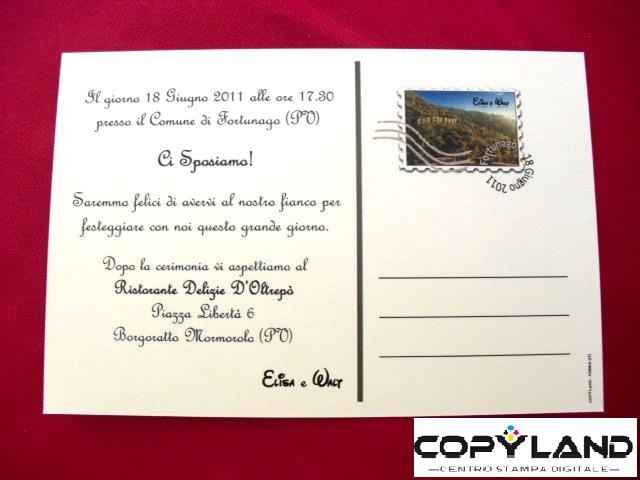 Il giorno 18 Giugno 2011 alle ore 17.30
presso il Comune di Fortunago (PV)
Ci Sposiamo!
Saremmo felici di avervi al nostro fianco per
festeggiare con noi questo grande giorno.
Dopo la cerimonia vi aspettiamo al
Ristorante Delizie D'Oltrepò
Piazza Libertà 6
Borgoratto Mormorolo (PV)
Elisa e Walt
Elisa e Walt
Fortunago
18 Giugno 2011
COPYLAND
CENTRO STAMPA DIGITALE